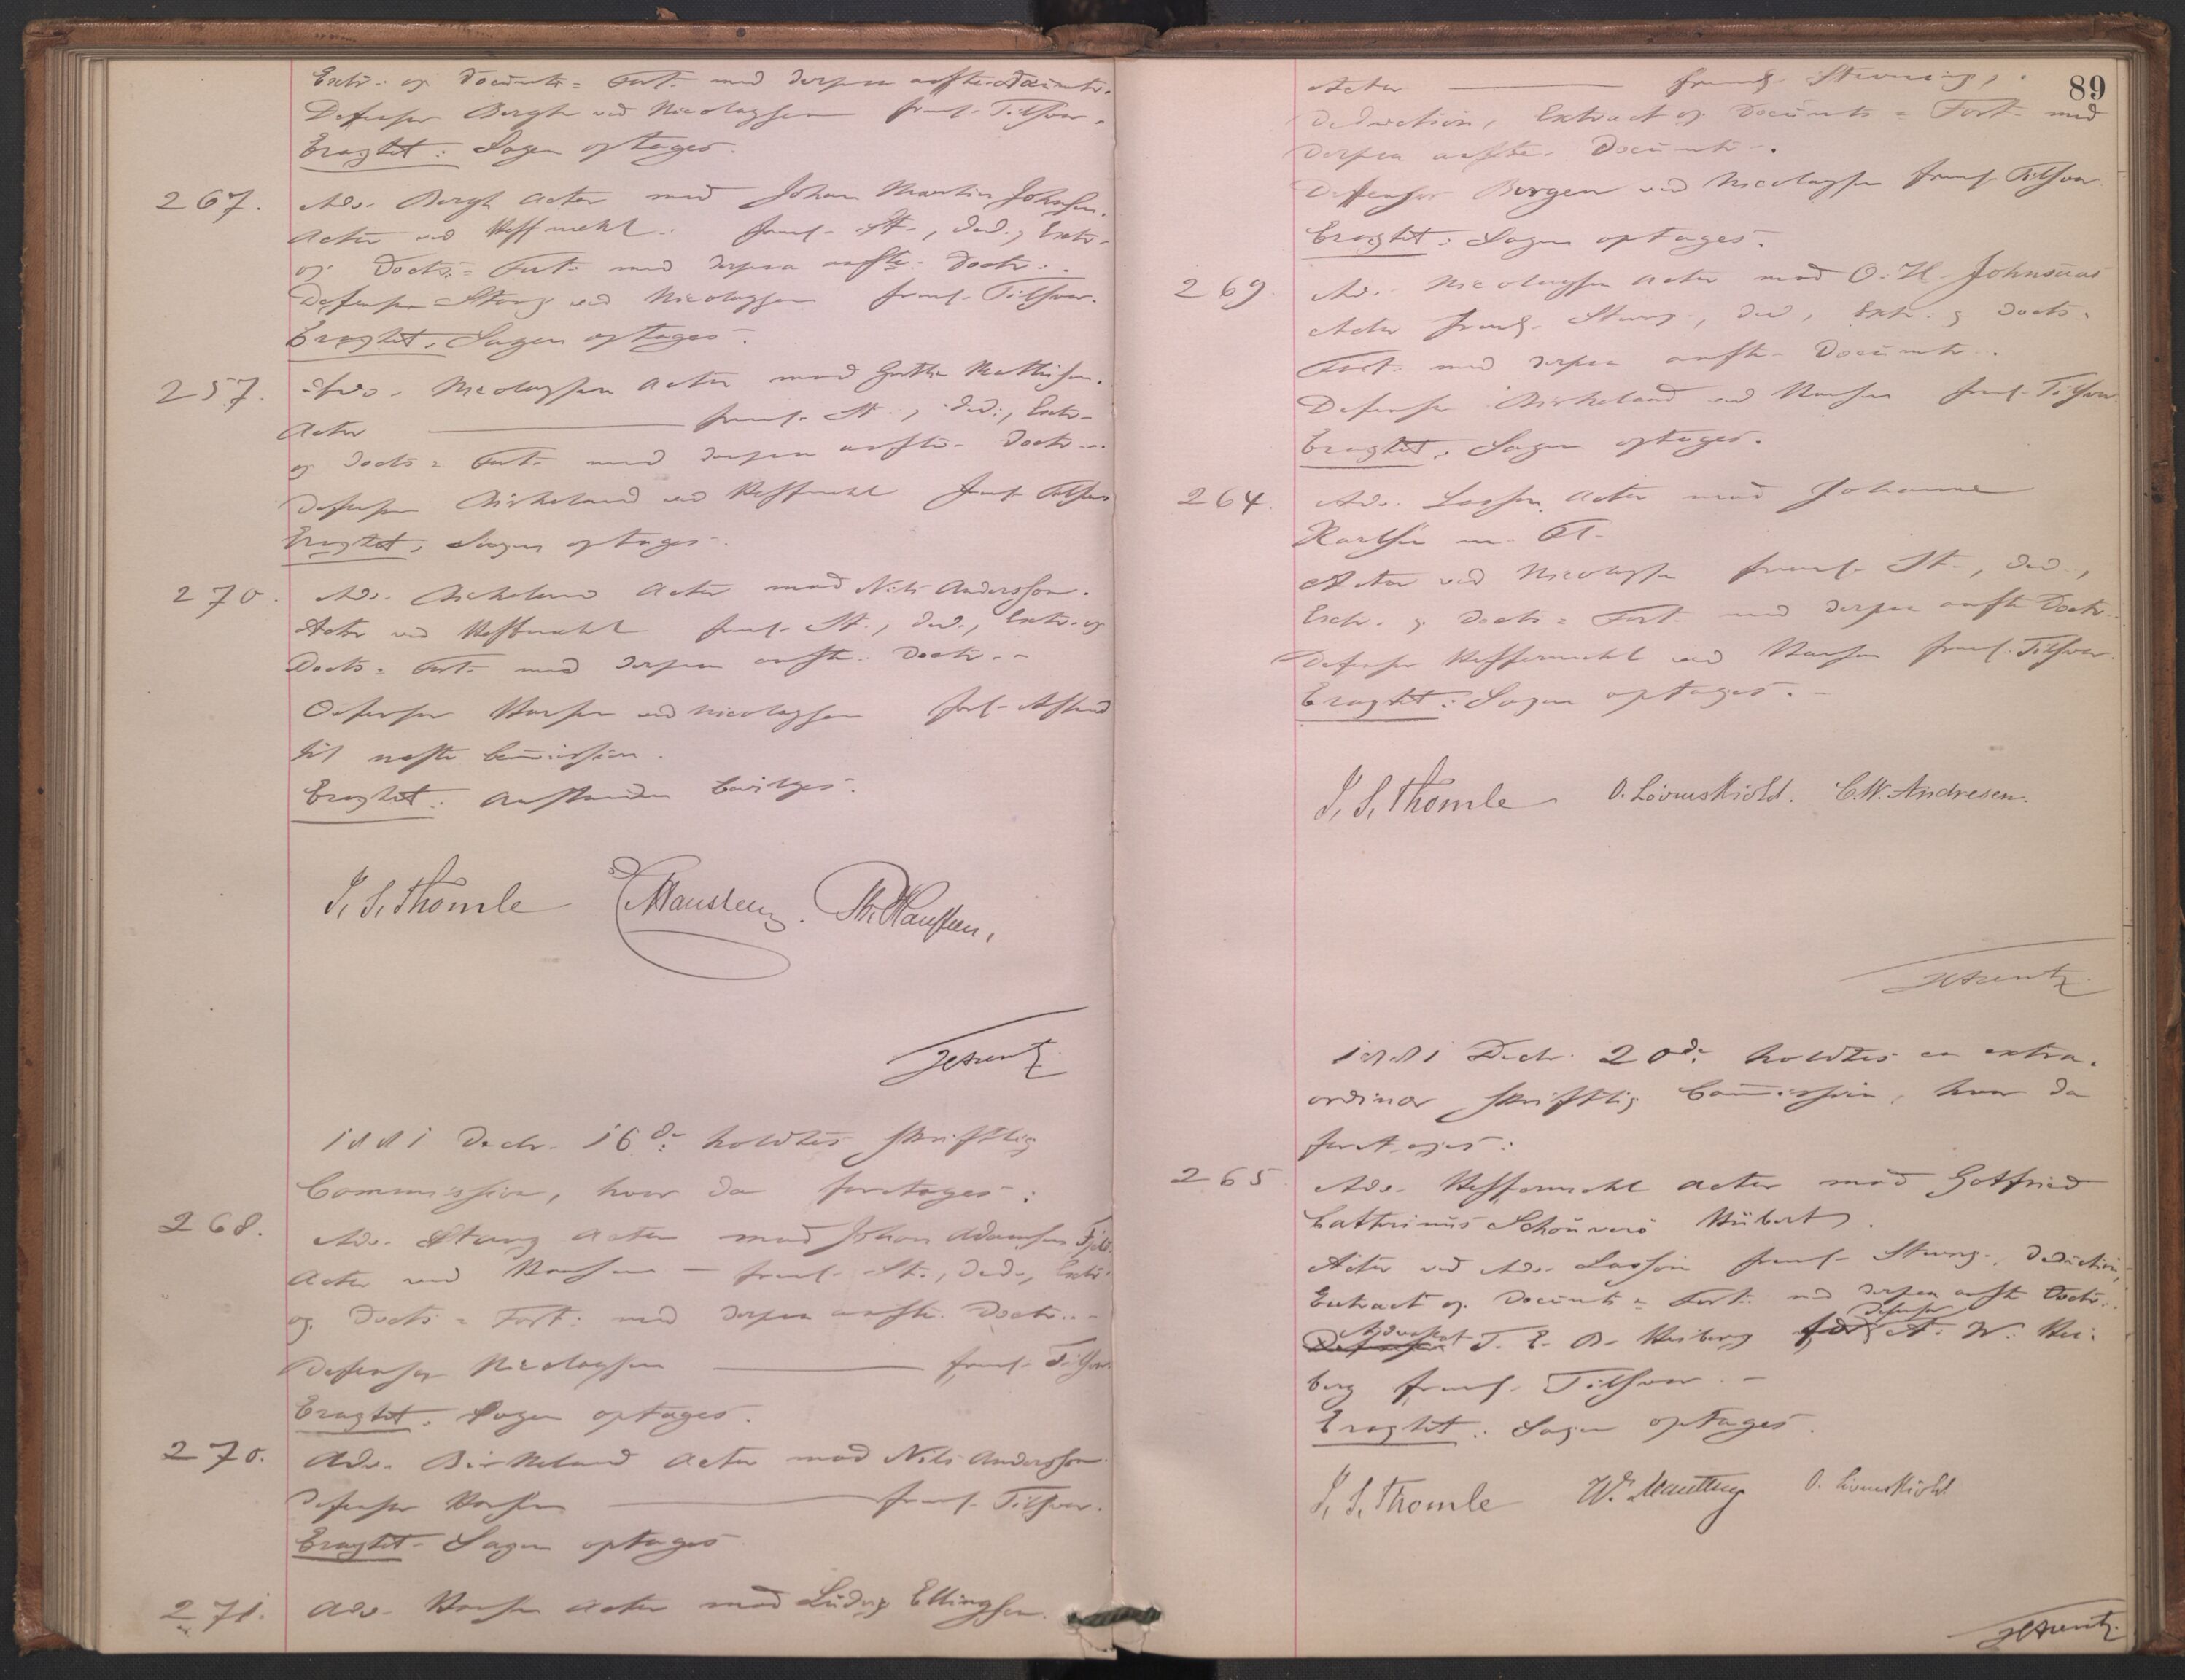 Extr. og Documts = Fort. med derpaa anførte Documtr.
Defensor Bergh ved Nicolaysen freml. Tilsvar.
Eragtet: Sagen optages.
267. Adv. Bergh Actor mod Johan Martin Johnsen.
Actor ved Heffmehl freml. St., Ded., Extr.
og Docts = Fort. med derpaa anførte Doctr.
Defensor Stang ved Nicolaysen freml. Tilsvar.
Eragtet: Sagen optages.
257. Adv. Nicolaysen Actor mod Mathisen.
Actor freml. St., Ded., Extr.
og Docts = Fort. med derpaa anførte Doctr.
Defensor Birkeland ved Heffermehl freml. Tilsvar
Eragtet: Sagen optages.
270. Adv. Birkeland Actor mod Nils Andersson.
Actor ved Heffermehl freml. St., Ded., Extr. og
Docts = Fort. med derpaa anførte Doctr.
Defensor Hansen ved Nicolaysen forl. Afstand
til næste Comission.
Eragtet: Anstanden bevilges.
J. S. Thomle Th. Hansteen,
1881 Decbr. 16de holdtes skriftlig
Commission, hvor da foretages:
268. Adv. Stang Actor mod Johan Adamsen
Actor ved Hansen freml. St., Ded., Extr.
og Docts = Fort. med derpaa anførte Doctr.
Defensor Nicolaysen freml. Tilsvar.
Eragtet: Sagen optages.
270. Adv. Birkeland Actor mod Nils Andersson
Defensor Hansen freml. Tilsvar.
Eragtet. Sagen optages
271. Adv. Hansen Actor mod Ludvig Ellingsen.
89
Actor freml. Stevning,
Deduction, Extract og Documts = Fort. med
derpaa anførte Documtr.
Defensor Bergen ved Nicolaysen freml. Tilsvar.
Eragtet: Sagen optages.
269. Adv. Nicolaysen Actor mod O. H. Johnsrud
Actor freml. Stevng., Ded., Extr. og Docts =
Fort. med derpaa anførte Documtr.
Defensor Birkeland ved Hansen freml. Tilsvar.
Eragtet: Sagen optages.
264. Adv. Lasson Actor mod Johanne
Karlsen m. Fl.
Actor ved Nicolaysen freml. St., Ded.,
Extr. og Docts = Fort. med derpaa anførte Doctr.
Defensor Heffermehl ved Hansen freml. Tilsvar.
Eragtet: Sagen optages.
J. S. Thomle O. Løvenskiold. C. W. Andresen.
1881 Decbr. 20de holdtes en extra-
ordinær skriftlig Comission, hvor da
foretages:
265 Adv. Heffermehl Actor mod Gotfried
Cathrinus Hübert.
Actor ved Adv. Lasson freml. Stevng., Deduction,
Extract og Documts = Fort. med derpaa anførte Doctr.
Advokat T. E. B. Heiberg for Defensor A. W. Hei-
berg freml. Tilsvar.
Eragtet: Sagen optages.
J. S. Thomle O. Løvenskiold